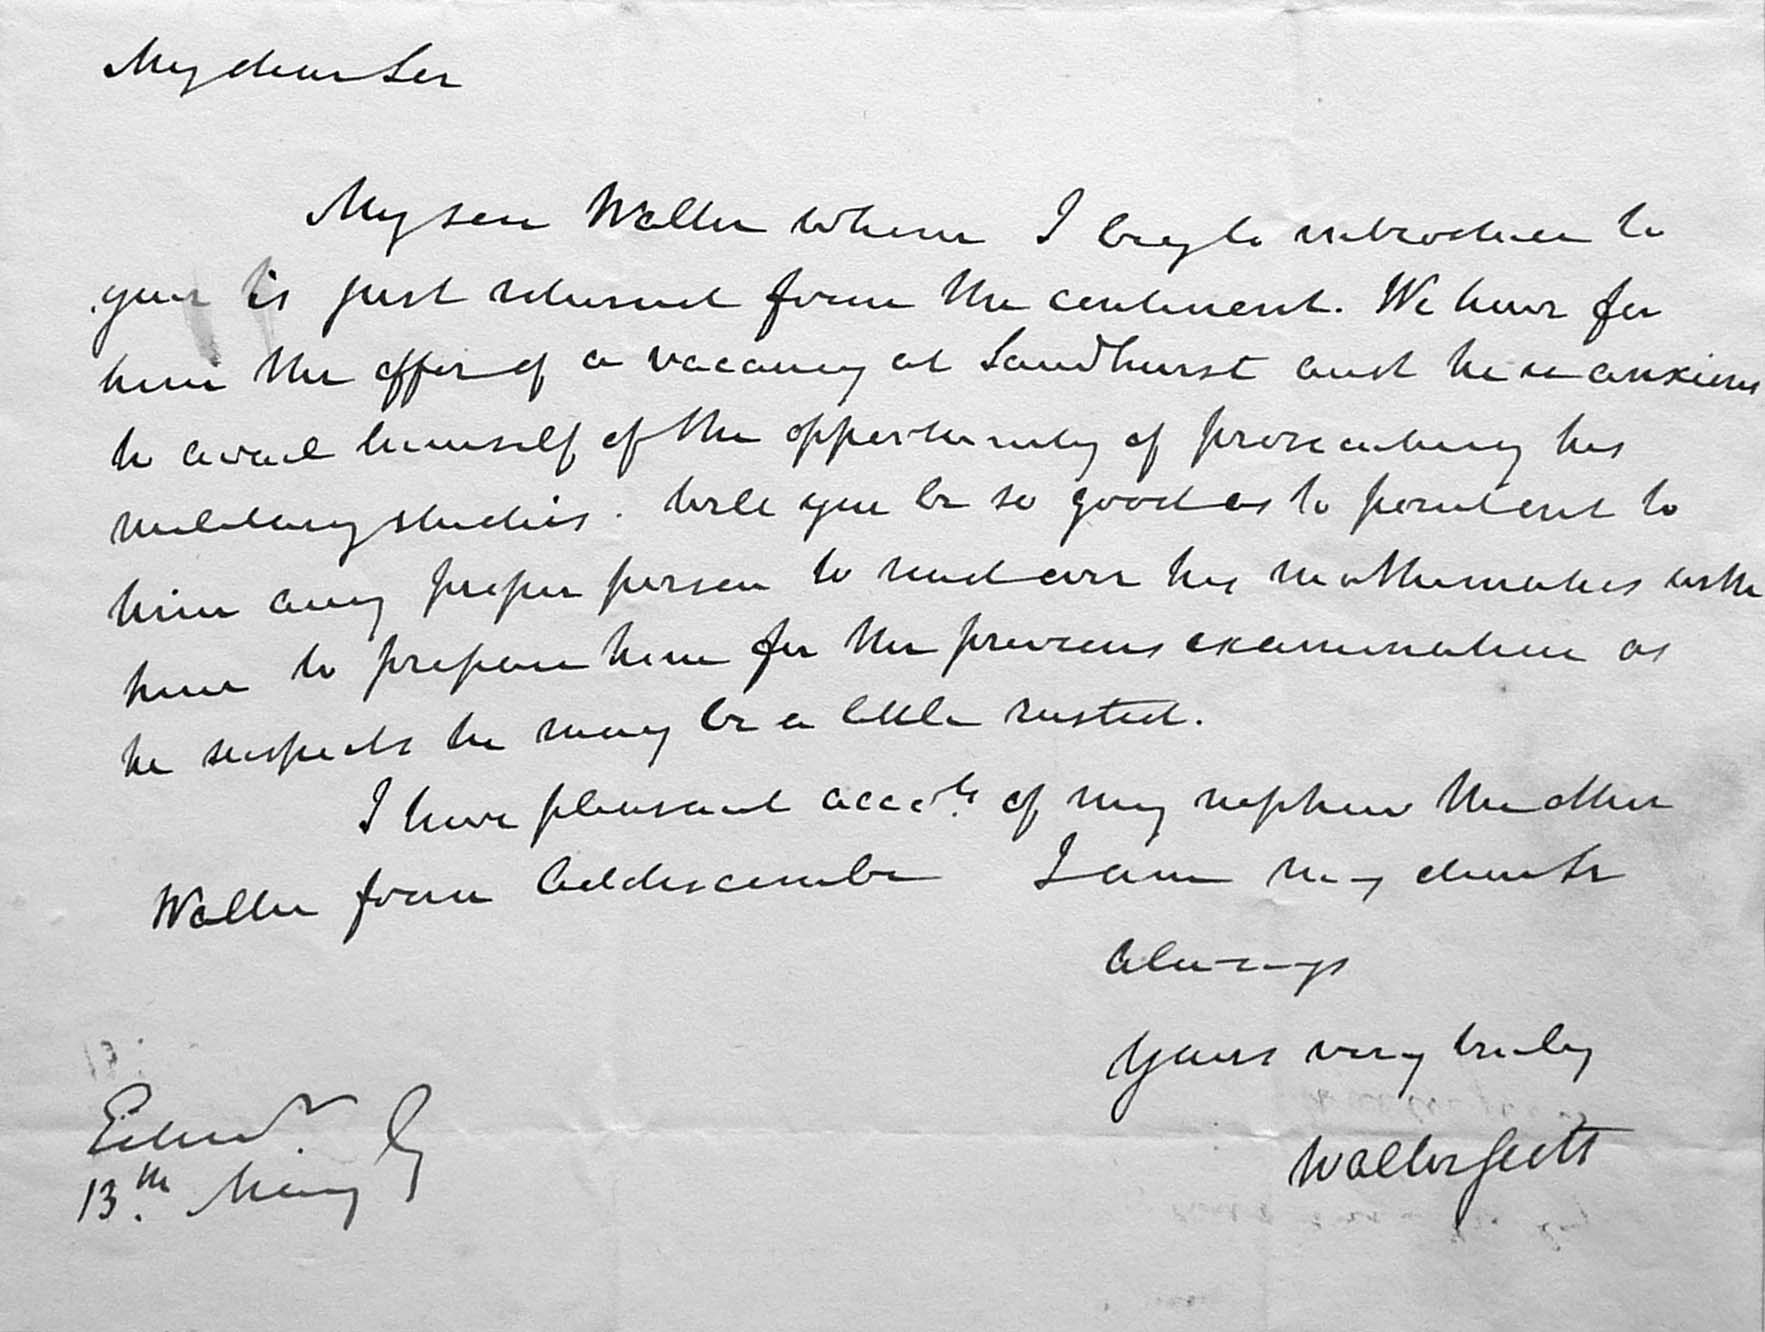 My dear Sir
My son Walter whom I beg to introduce to
you is just returned from the continent. We have for
him the offer of a vacancy at Sandhurst and he is anxious
to avail himself of the opportunity of prosecuting his
military studies. Will you be so good as to point out to
him any proper person to read over his mathematics with
him to prepare him for the previous examination as
he suspects he may be a little rusted.
I have pleasant accots. of my nephew the other
Walter from Addiscombe I am my dear Sir
always
Yours very truly
Walter Scott
Edinr.
13th. May